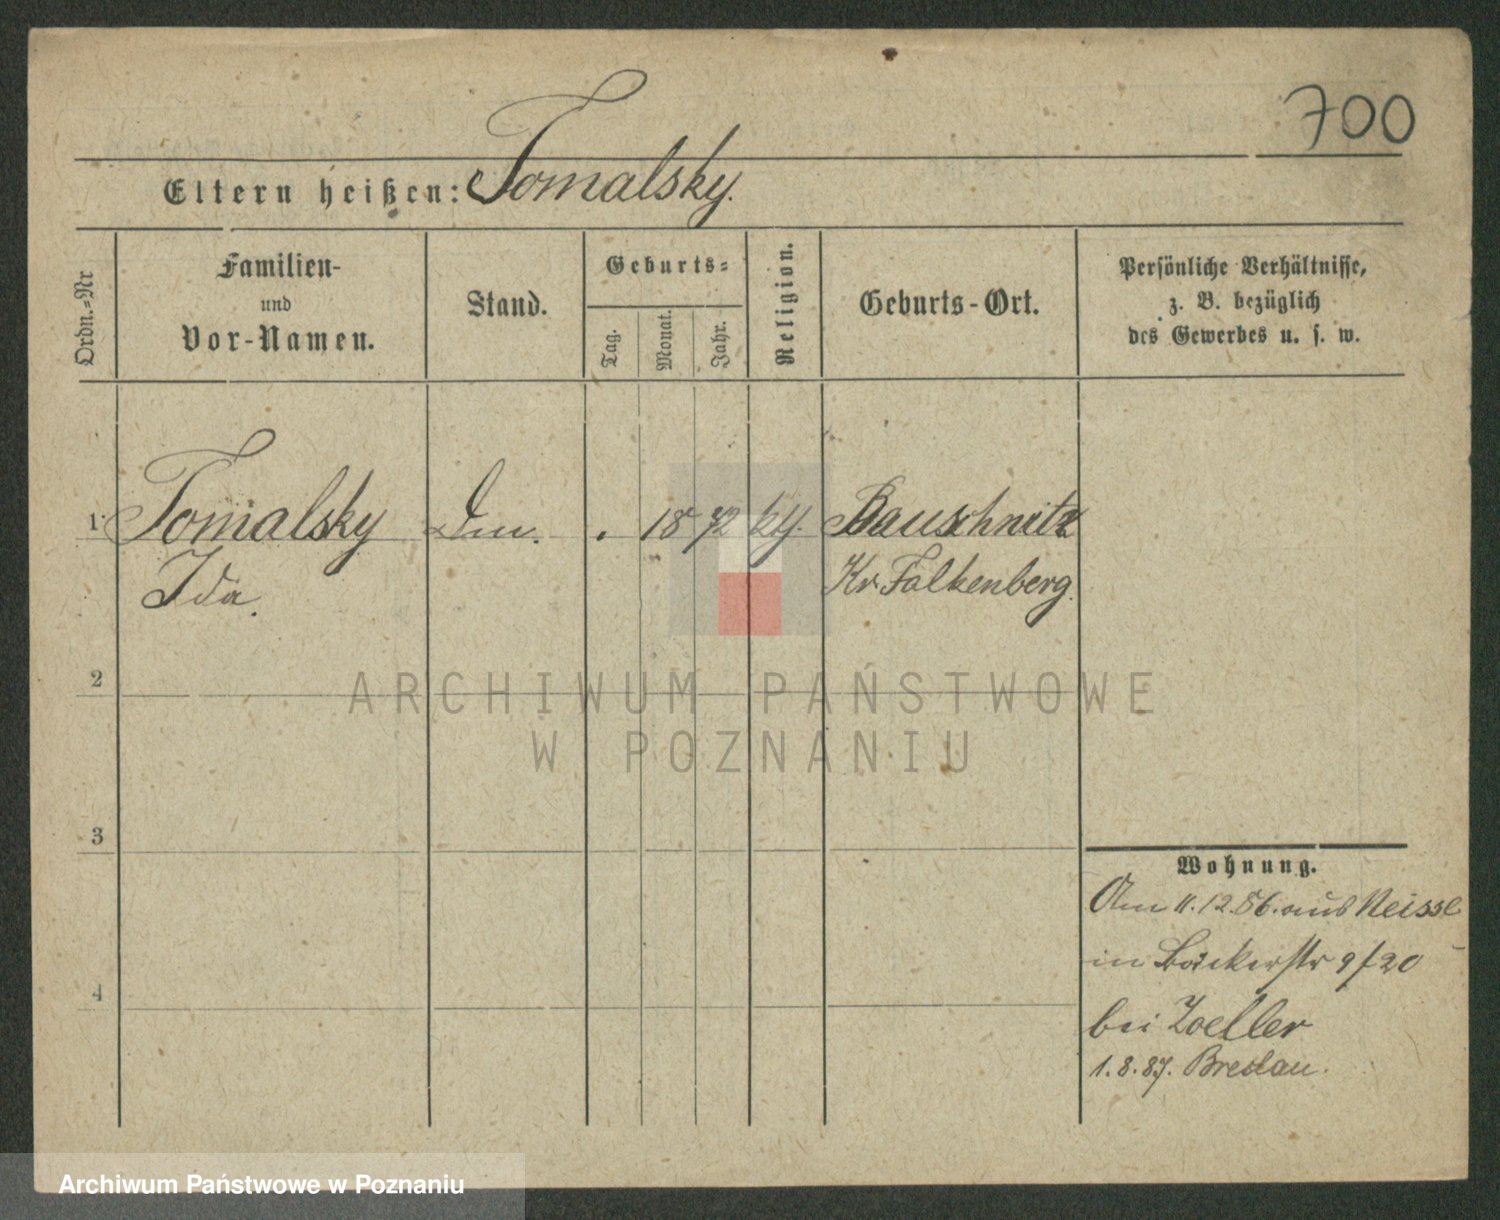 700
Eltern heißen: Tomalsky.
Ordn.-Nr
Familien-
und
Vor-Namen.
Stand.
Geburts-
Tag.
Monat.
Jahr.
Religion.
Geburts-Ort.
Persönliche Verhältnisse,
z. B. bezüglich
des Gewerbes u. s. w.
1. Tomalsky . 1872 Bauschnitz
Ida. Kr. Falkenberg.
2
3
4
ARCHIWUM PAŃSTWOWE
W POZNANIU
Wohnung.
Am 11.12.86. aus Neisse
in Bäckerstr 9/20
bei Zoeller
1.8.87. Breslau.
Archiwum Państwowe w Poznaniu